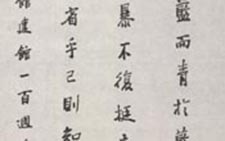 藍而青於藍
暴不復挺
省乎己則知
館建館一百週